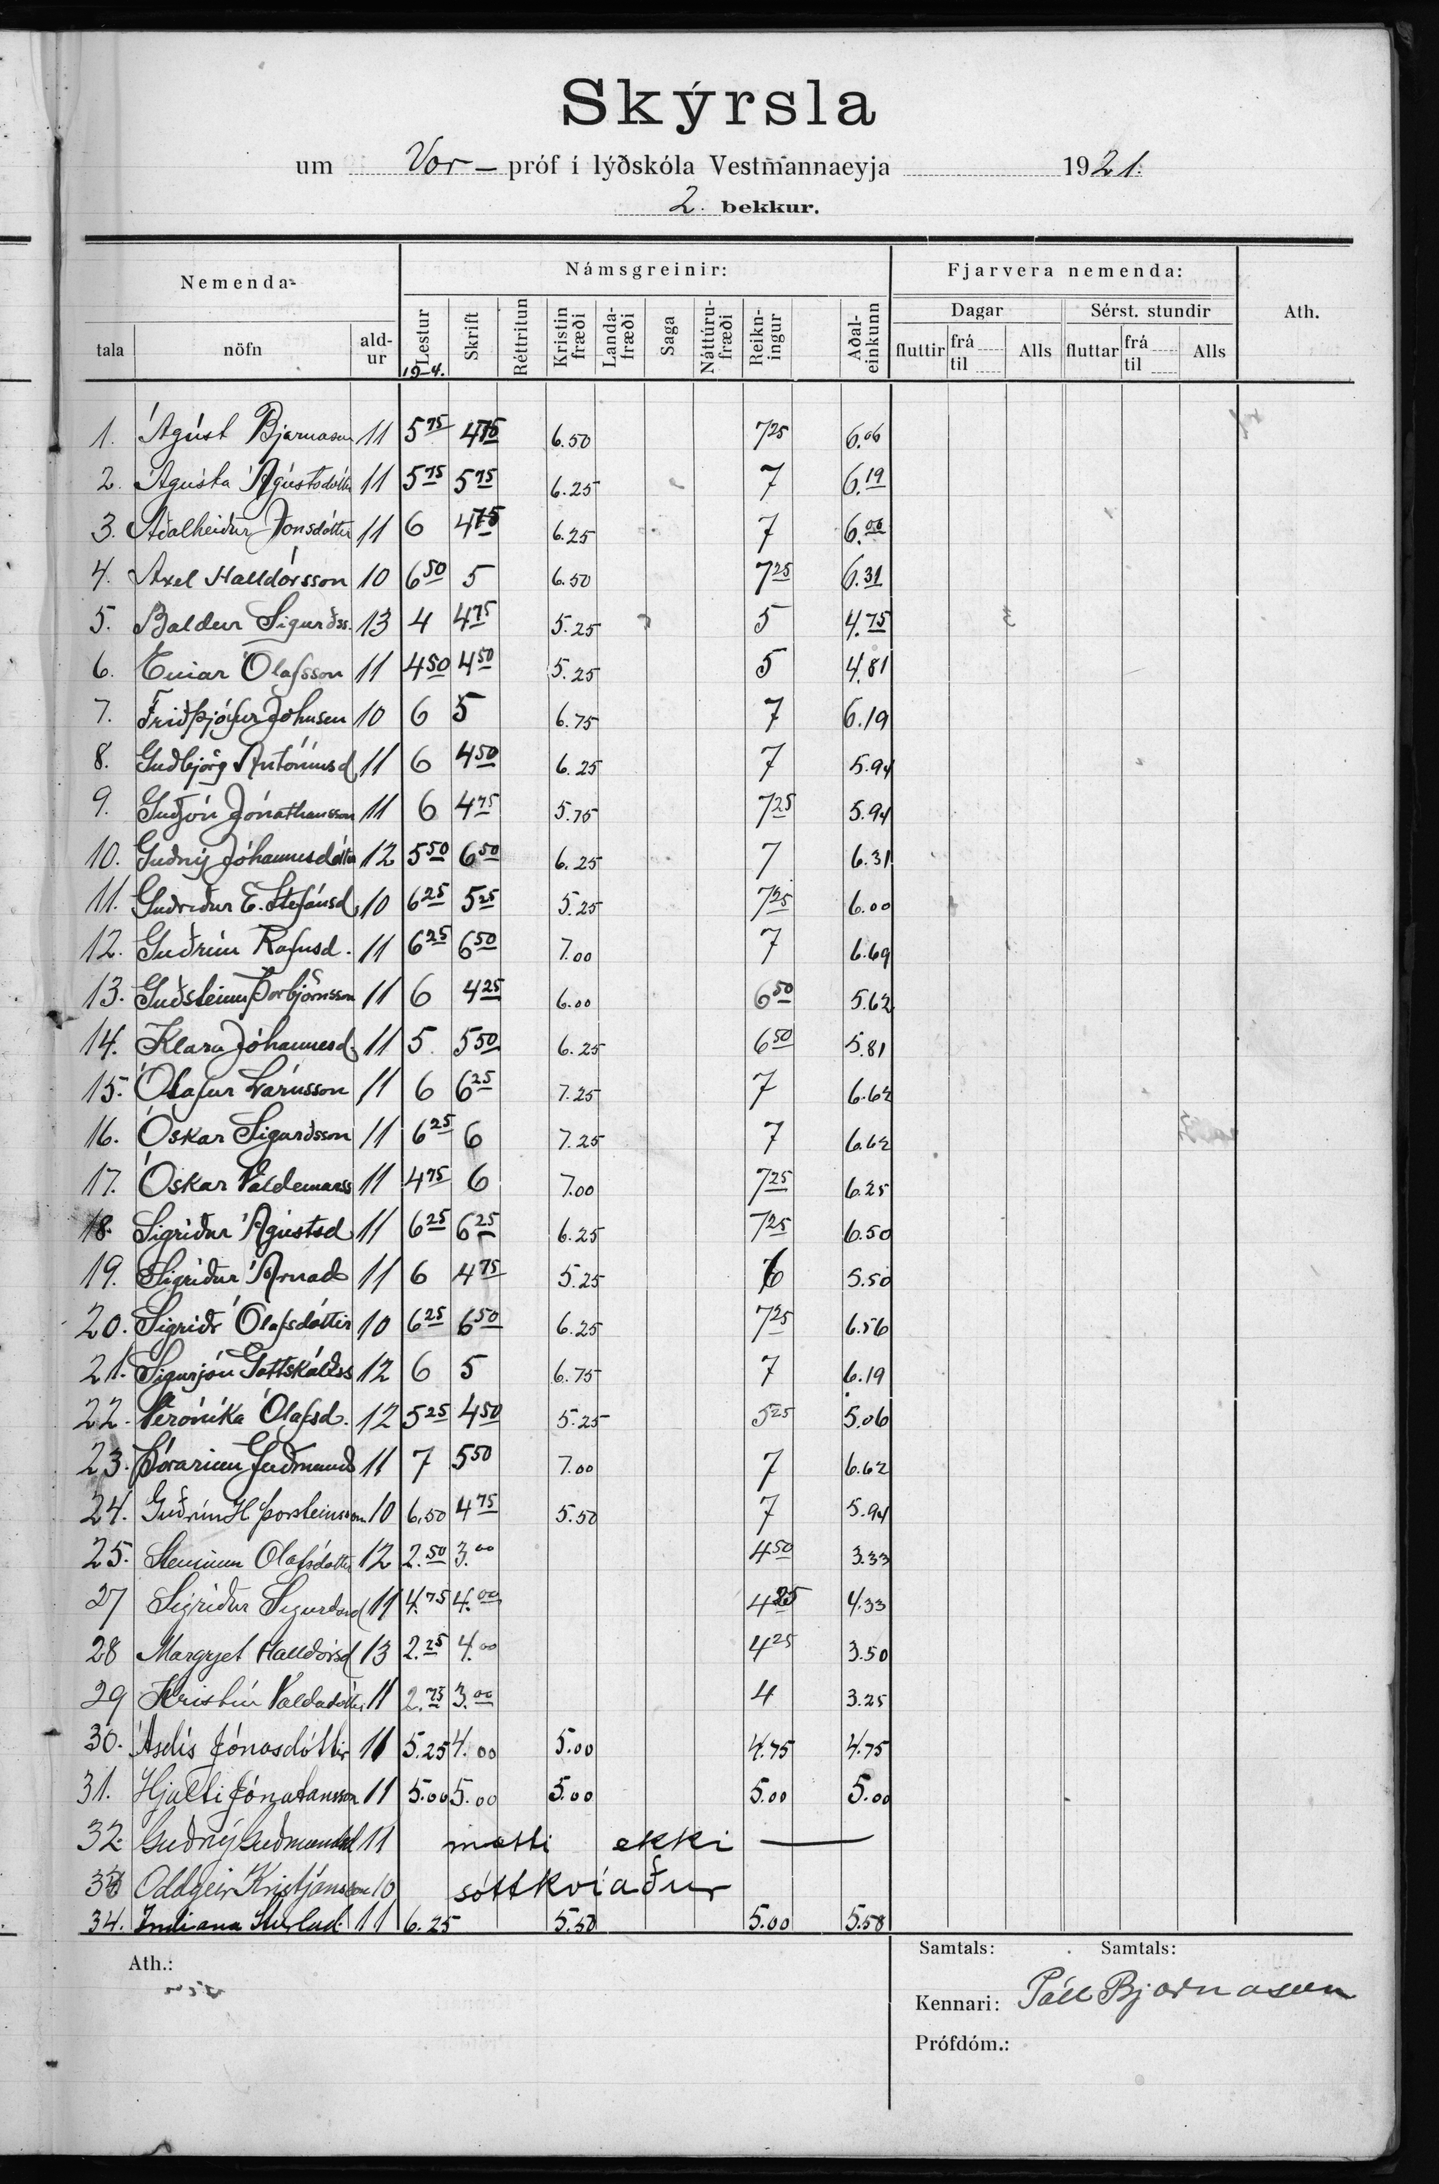 Skýrsla
um Vor- próf í lýðskóla Vestmannaeyja 1921.
2. bekkur.
Nemenda- Námsgreinir: Fjarvera nemenda: Ath.
Dagar Sérst. stundir
tala nöfn ald-ur Lestur Skrift Réttritun Kristin fræði Landa-fræði Saga Náttúru-fræði Reikn-ingur Aðal-einkunn fluttir frá til Alls fluttar frá til Alls
19-4.
1. Ágúst Bjarnason 11 5 75 4 75 6.50 7 25 6.06
2. Ágústa Ágústsdóttir 11 5 75 5 75 6.25 7 6.19
3. Aðalheiður Jónsdóttir 11 6 4 75 6.25 7 6.00
4. Axel Halldórsson 10 6 50 5 6.50 7 25 6.31
5. Baldur Sigurðss. 13 4 4 75 5.25 5 4.75
6. Einar Ólafsson 11 4 50 4 50 5.25 5 4.81
7. Friðþjófur Johnsen 10 6 5 6.75 7 6.19
8. Guðbjörg Antóníusd 11 6 4 50 6.25 7 5.94
9. Guðjón Jónathansson 11 6 4 75 5.75 7 25 5.94
10. Guðný Jóhannesdóttir 12 5 50 6 50 6.25 7 6.31
11. Guðríður E. Stefánsd. 10 6 25 5 25 5.25 7 25 6.00
12. Guðrún Rafnsd. 11 6 25 6 50 7.00 7 6.69
13. Guðsteinn Þorbjörnsson 11 6 4 25 6.00 6 50 5.62
14. Klara Jóhannesd. 11 5 5 50 6.25 6 50 5.81
15. Ólafur Lárusson 11 6 6 25 7.25 7 6.62
16. Óskar Sigurðsson 11 6 25 6 7.25 7 6.62
17. Óskar Valdemarss 11 4 75 6 7.00 7 25 6.25
18. Sigríður Ágústsd. 11 6 25 6 25 6.25 7 25 6.50
19. Sigríður Árnad 11 6 4 75 5.25 6 5.50
20. Sigríðr Ólafsdóttir 10 6 25 6 50 6.25 7 25 6.56
21. Sigurjón Gottskálkss 12 6 5 6.75 7 6.19
22. Verónika Ólafsd. 12 5 25 4 50 5.25 5 25 5.06
23. Þórarinn Guðmunds 11 7 5 50 7.00 7 6.62
24. Guðrún H Þorsteinsson 10 6.50 4 75 5.50 7 5.94
25. Steinunn Ólafsdóttir 12 2.50 3.00 4 50 3.33
27 Sigríður Sigurðard 11 4.75 4.00 4 25 4.33
28 Margrjet Halldórsd 13 2.25 4.00 4 25 3.50
29 Kristín Valdadóttir 11 2.75 3.00 4 3.25
30. Ásdís Jónasdóttir 11 5.25 4.00 5.00 4.75 4.75
31. Hjalti Jónatansson 11 5.00 5.00 5.00 5.00 5.00
32. Guðný Guðmundsd 11 mætti ekki —
33 Oddgeir Kristjánsson 10 sóttkvíaður
34. Indíana Sturlud. 11 6.25 5.50 5.00 5.58
Ath.: Samtals: Samtals:
Kennari: Páll Bjarnason
Prófdóm.: